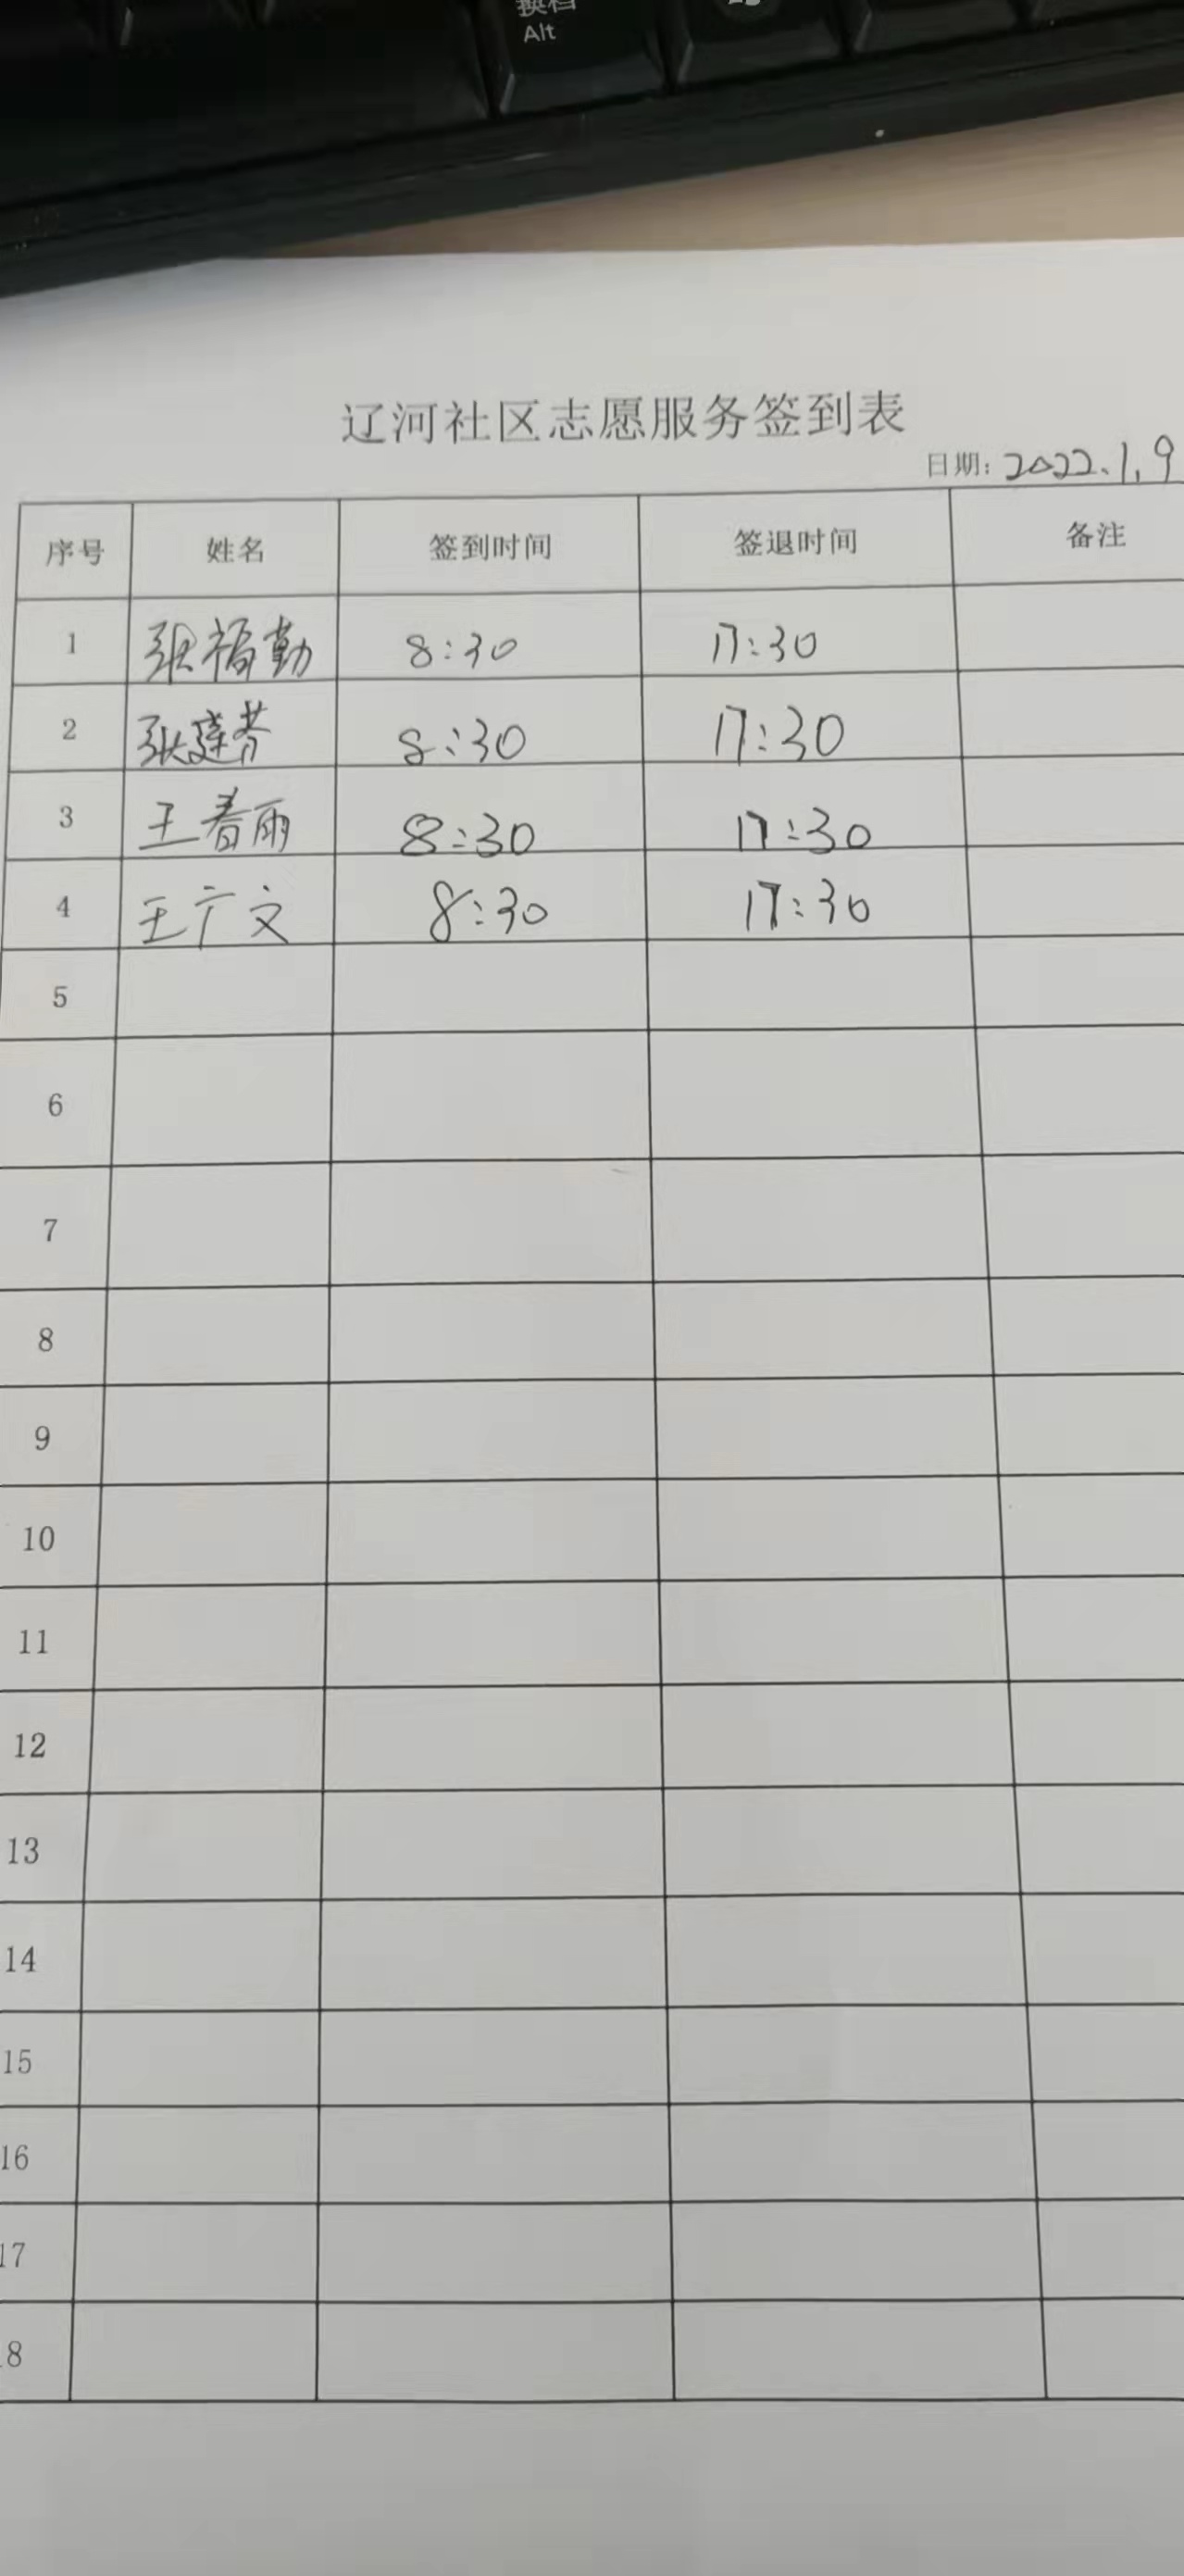 换档
Alt
辽河社区志愿服务签到表
日期: 2022.1.9
序号 姓名 签到时间 签退时间 备注
1 张福勤 8:30 17:30
2 张建芳 8:30 17:30
3 王春雨 8:30 17:30
4 王广文 8:30 17:30
5
6
7
8
9
10
11
12
13
14
15
16
17
18